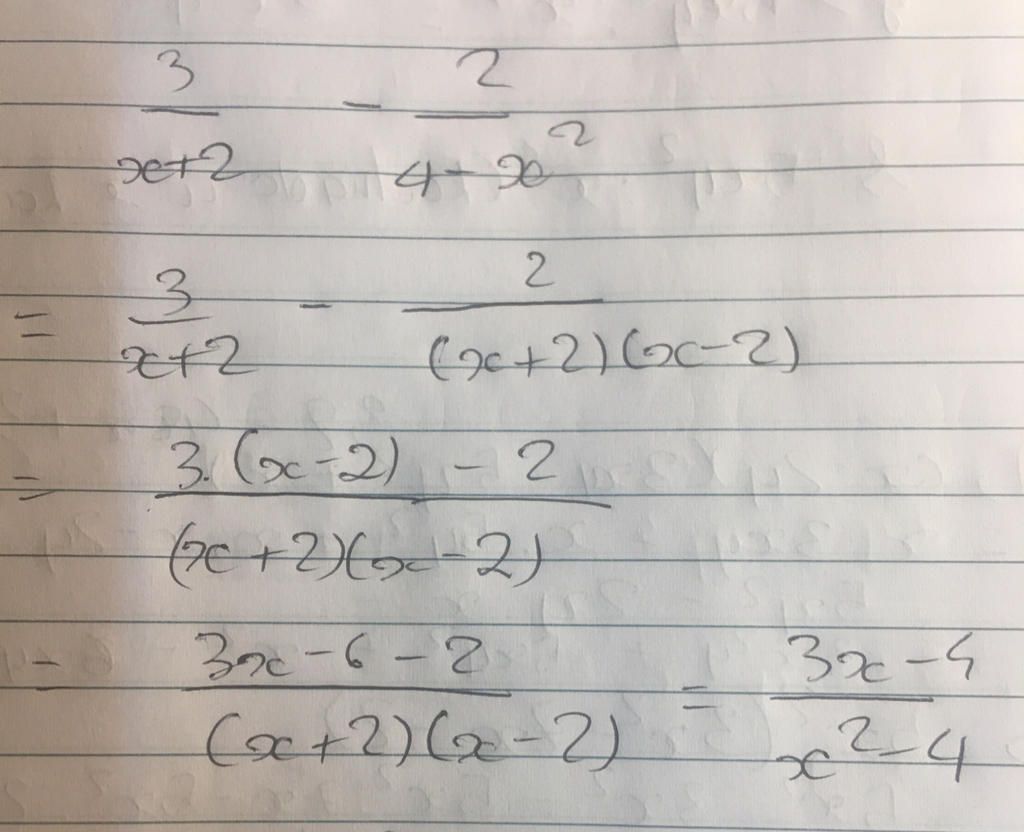 3/(x+2) - 2/(4-x²)
= 3/(x+2) - 2/((x+2)(x-2))
= (3.(x-2) - 2)/((x+2)(x-2))
- (3x-6-2)/((x+2)(x-2)) = (3x-4)/(x²-4)